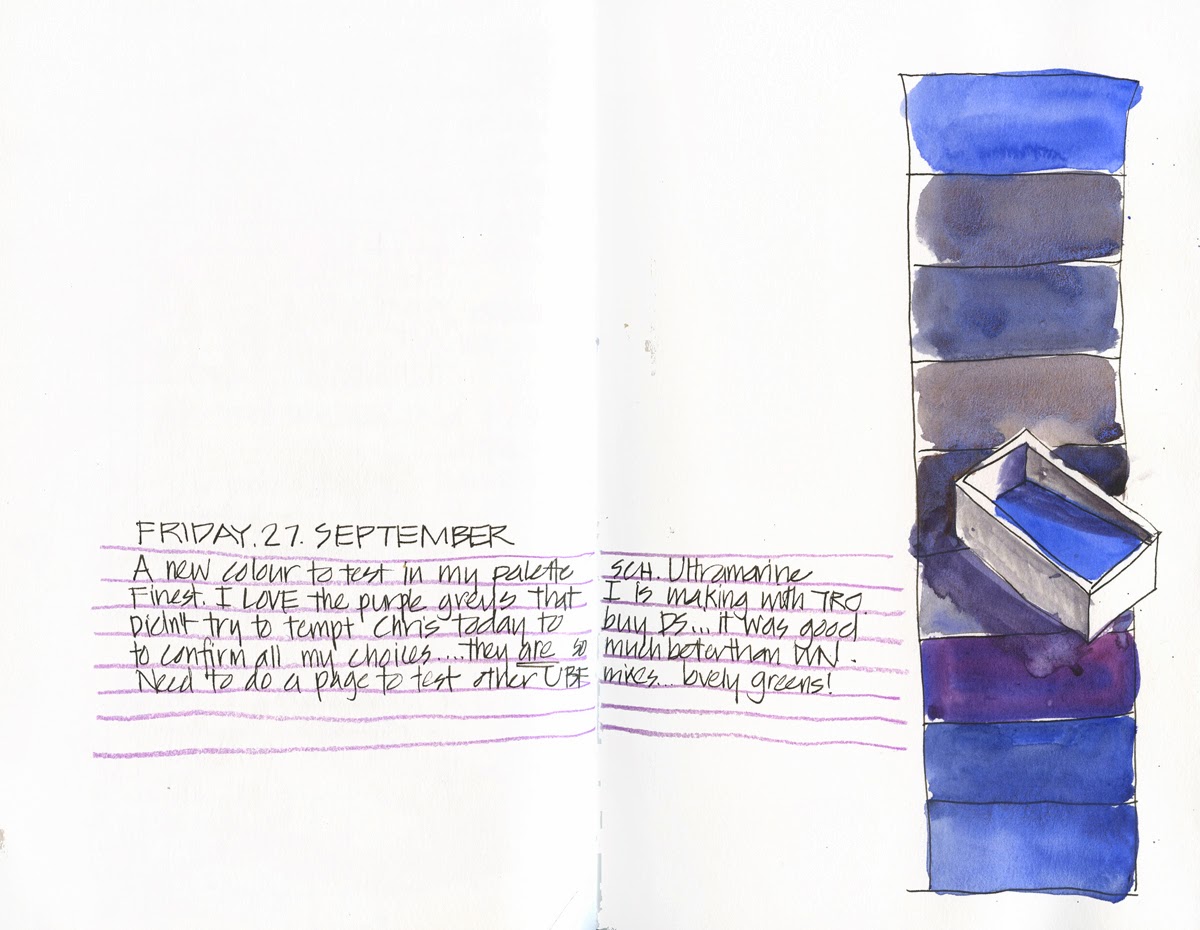 FRIDAY. 27. SEPTEMBER
A new colour to test in my palette SCH. Ultramarine
Finest. I LOVE the purple greys that I is making with TRO
Didn't try to tempt Chris today to buy DS... it was good
to confirm all my choices.... they are so much beter than WN.
Need to do a page to test other UBF mixes... lovely greens!